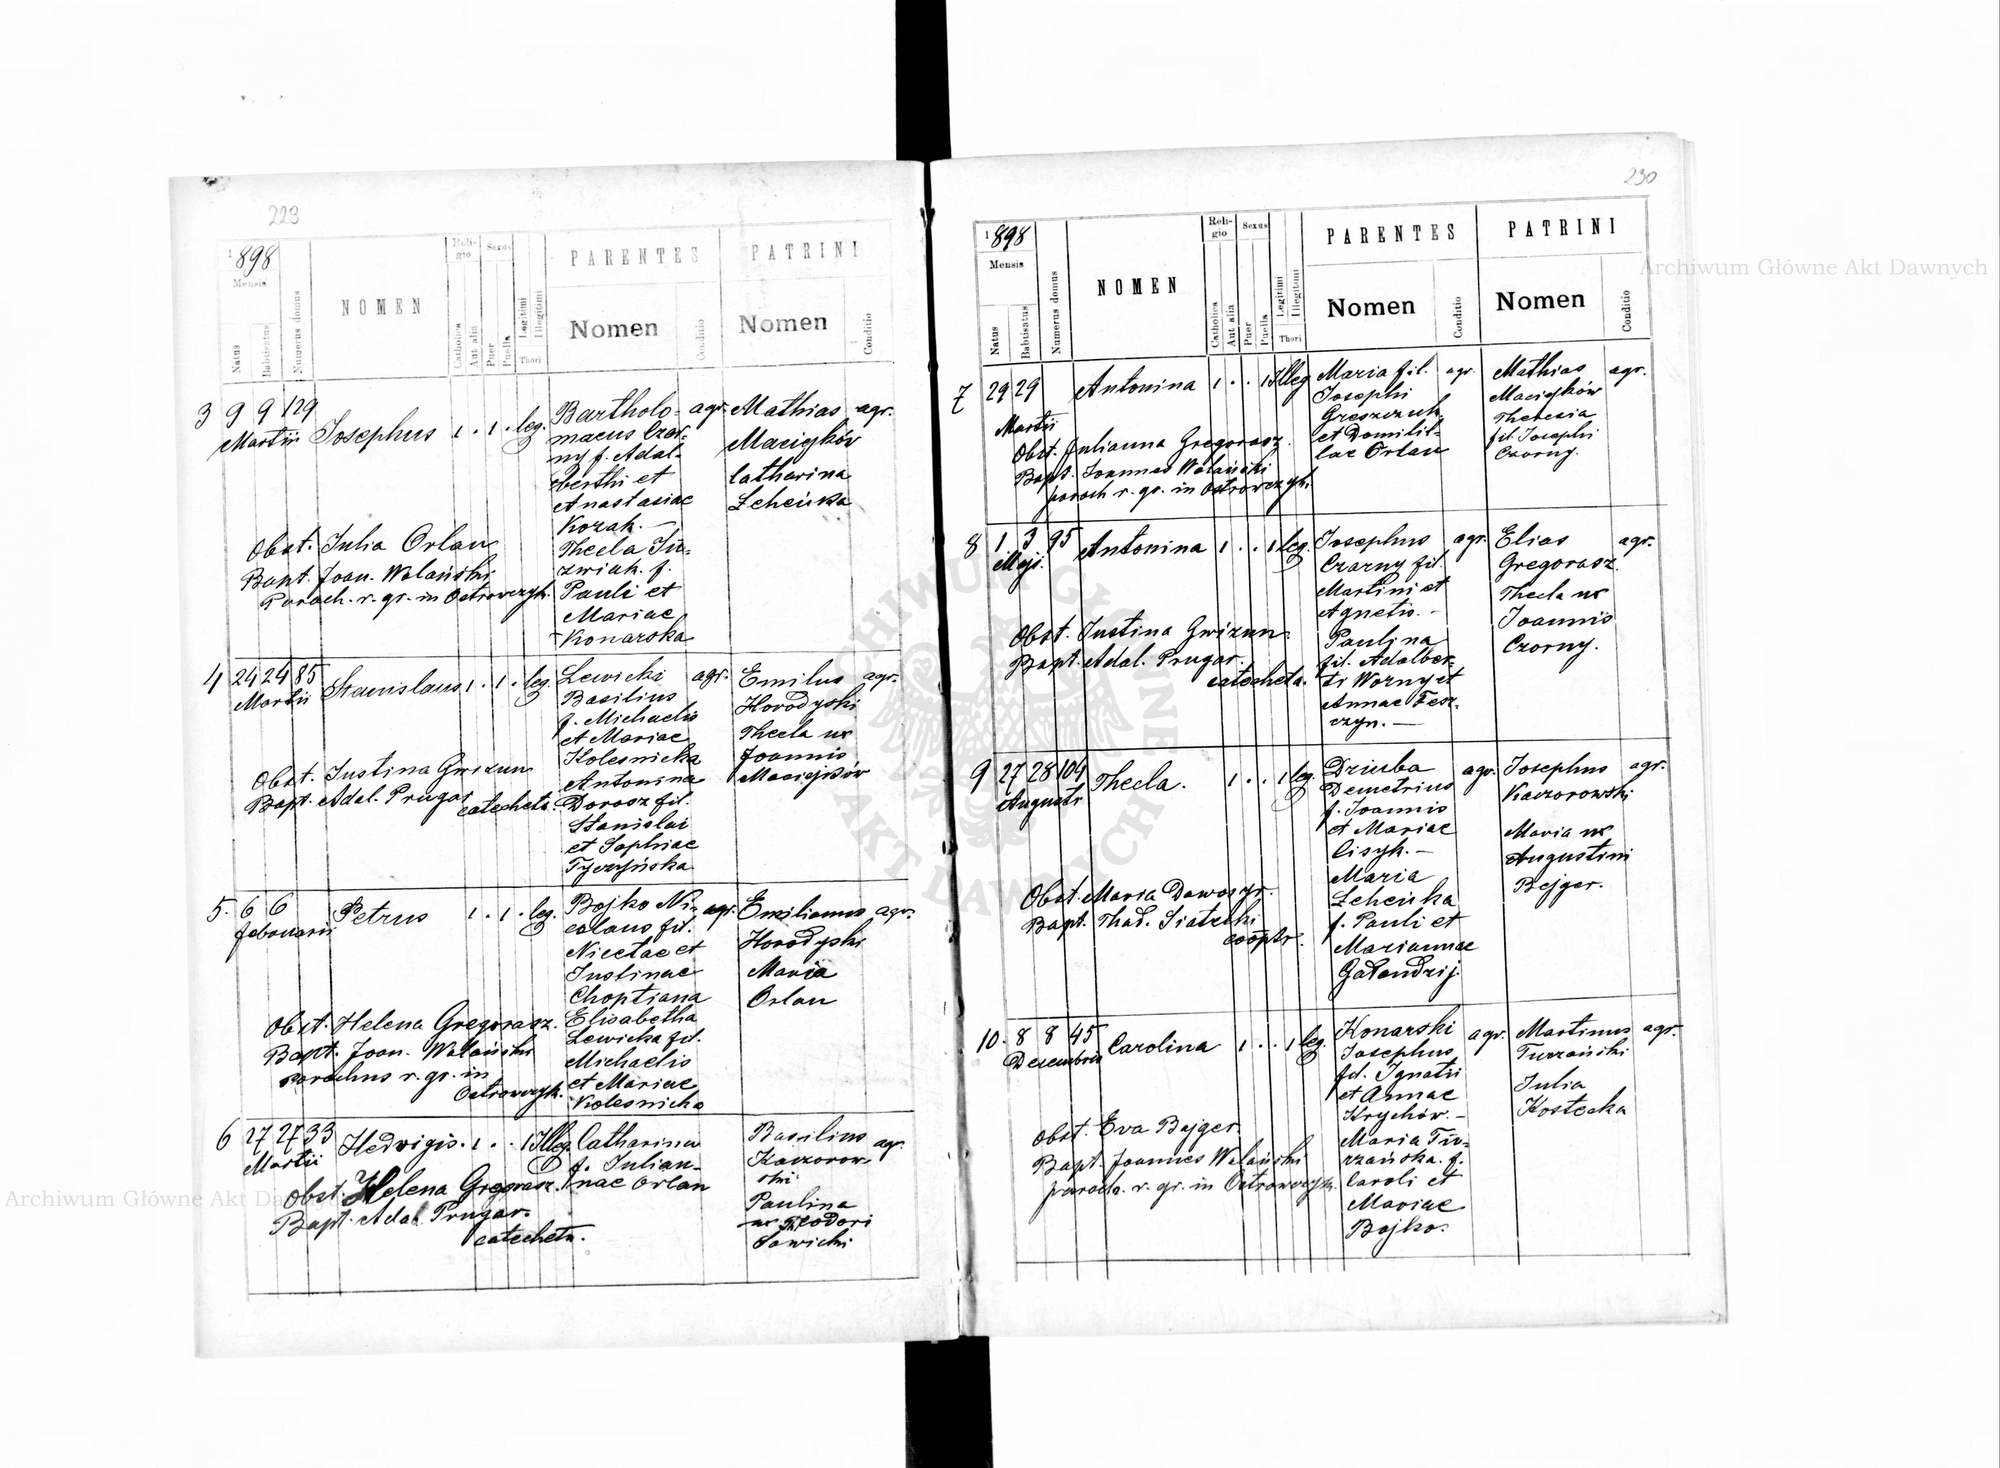 223
1898
Mensis
Natus
Babtisatus
Numerus domus
NOMEN
Reli-
gio
Catholica
Aut alia
Sexus
Puer
Puella
Legitimi
Illegitimi
Thori
PARENTES
Nomen
Conditio
PATRINI
Nomen
Conditio
3 9 9 129 Josephus 1 . 1 . leg. Bartholo- agr. Mathias agr.
Martii
maeus Czor- Maciejków
ny f. Adal- Catharina
berthi et Leheńka
Anastasiae
Kozak. —
Obst. Julia Orlan Thecla Jó-
zwiak. f.
Bapt. Joan. Wolański Pauli et
Paroch. r. gr. in Ostrowczyk. Mariae
Konarska
4 24 24 85 Stanislaus 1 . 1 . leg. Lewicki agr. Emilus agr.
Martii Basilius Horodyski
f. Michaelis Thecla ux
et Mariae Joannis
Kolesnicka Maciejków
Obst. Justina Gwizun Antonina
Bapt. Adal. Prugar catecheta. Dorosz fil.
Stanislai
et Sophiae
Tyczyńska
5. 6 6 Petrus 1 . 1 . leg. Bojko Ni- agr. Emilianus agr.
Februarii colaus fil. Horodyski
Nicetae et Maria
Justinae Orlan
Choptiana
Obst. Helena Gregorasz. Elisabetha
Bapt. Joan. Wolański Lewicka fil.
parochus r. gr. in Michaelis
Ostrowczyk. et Mariae
Kolesnicka
6 27 27 33 Hedvigis. 1 . . 1 Illeg. Catharina Basilius agr.
Martii f. Julian- Kaczorow-
nae Orlan ski
Obst. Helena Gregorasz. Paulina
Bapt. Adal. Prugar ux Theodori
catecheta. Sawicki
230
1898
Mensis
Natus
Babtisatus
Numerus domus
NOMEN
Reli-
gio
Catholica
Aut alia
Sexus
Puer
Puella
Legitimi
Illegitimi
Thori
PARENTES
Nomen
Conditio
PATRINI
Nomen
Conditio
7 29 29 Antonina 1 . . 1 Illeg Maria fil. agr. Mathias agr.
Martii Josephi Maciejków
Greszczuk Theresia
et Domilil- fil. Josephi
lae Orlan Czorny.
Obst. Julianna Gregorasz.
Bapt. Joannes Wolański
paroch r. gr. in Ostrowczyk.
8 1 3 95 Antonina 1 . . 1 leg. Josephus agr. Elias agr.
Maji. Czarny fil. Gregorasz.
Martini et Thecla ux
Agnetis. — Joannis
Obst. Justina Gwizun Paulina Czorny.
Bapt. Adal. Prugar. fil. Adalber-
catecheta. ti Worny et
Annae
9 27 28 104 Thecla. 1 . . 1 leg. Dziuba agr. Josephus agr.
Augusti Demetrius Kaczorowski
f. Joannis Maria ux
et Mariae Augustini
Cisyk. — Bejger.
Maria
Obst. Maria Dawoszyr. Leheńka
Bapt. Thad. Siatecki f. Pauli et
cooptr. Mariannae
Gałandzij.
10. 8 8 45 Carolina 1 . . 1 leg. Konarski agr. Martinus agr.
Decembris Josephus Turzański
fil. Ignatii Julia
et Annae Kostecka
Krychów. —
Obst. Eva Bejger. Maria Tu-
Bapt. Joannes Wolański rzańska. f.
paroch. r. gr. in Ostrowczyk. Caroli et
Mariae
Bojko.
Archiwum Główne Akt Dawnych
Archiwum Główne Akt Dawnych
ARCHIWUM GŁÓWNE AKT DAWNYCH